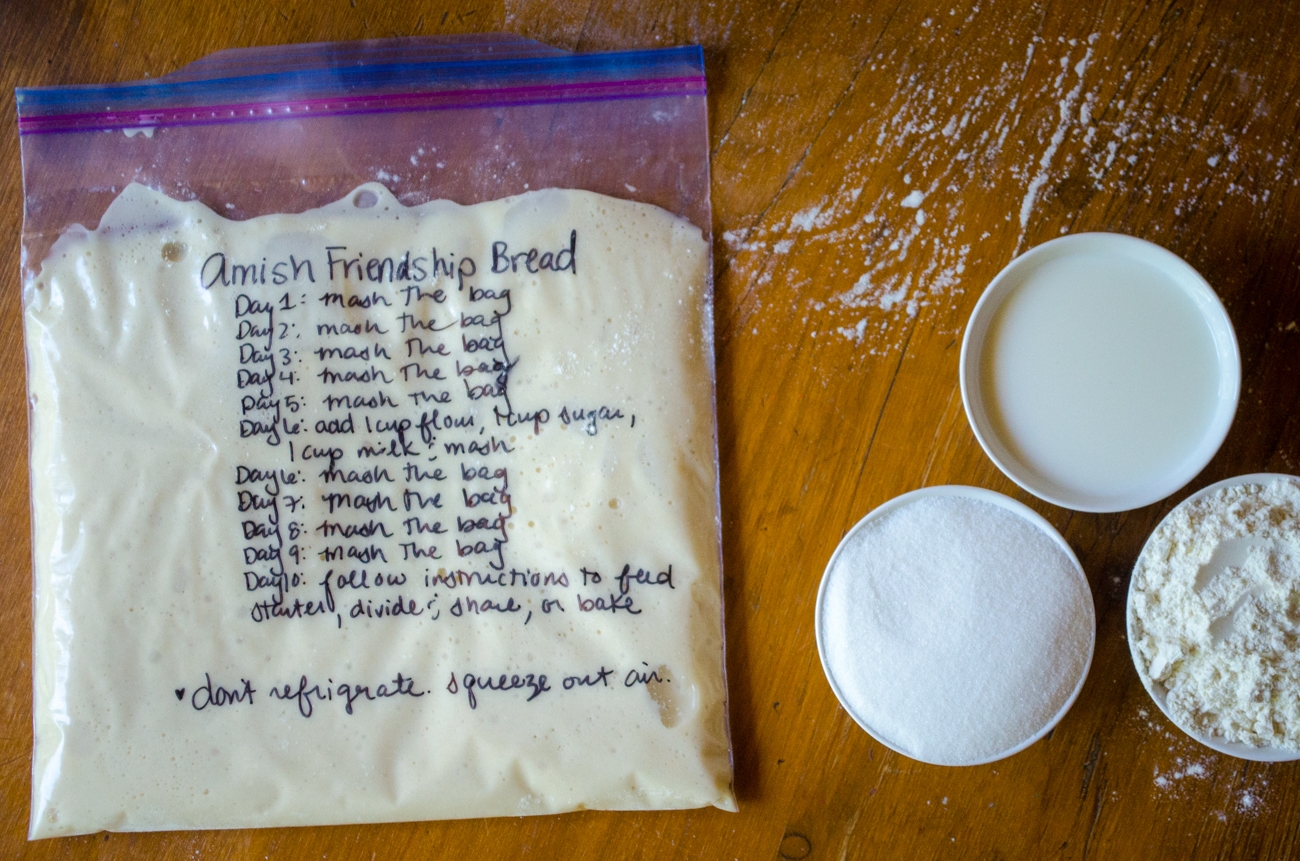 Amish Friendship Bread
Day 1: mash the bag
Day 2: mash the bag
Day 3: mash the bag
Day 4: mash the bag
Day 5: mash the bag
Day 6: add 1 cup flour, 1 cup sugar,
1 cup milk & mash
Day 6: mash the bag
Day 7: mash the bag
Day 8: mash the bag
Day 9: mash the bag
Day 10: follow instructions to feed
starter, divide & share, or bake
♥ don't refrigrate. squeeze out air.